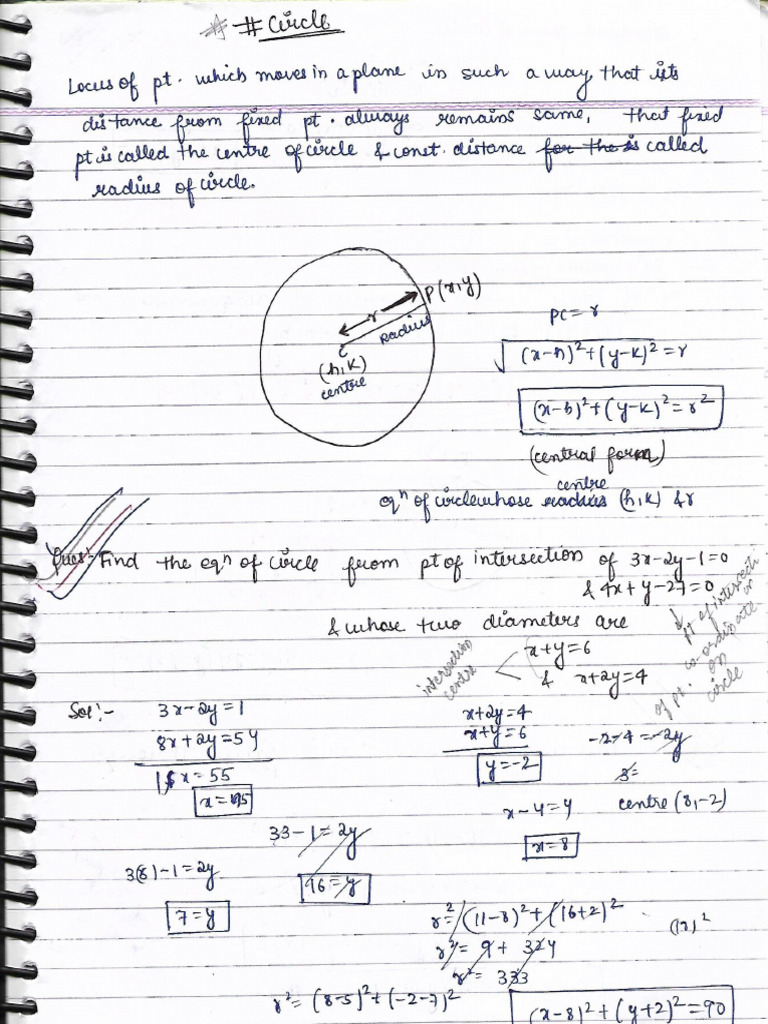 # Circle
Locus of pt. which moves in a plane in such a way that its
distance from fixed pt. always remains same, that fixed
pt is called the centre of circle & const. distance for the is called
radius of circle.
P(x,y)
r
radius
C
(h,k)
centre
PC = r
√(x-h)²+(y-k)² = r
(x-h)²+(y-k)² = r²
(central form)
centre
eqⁿ of circle whose radius (h,k) & r
Ques:- Find the eqⁿ of circle from pt of intersection of 3x-2y-1=0
& 4x+y-27=0
& whose two diameters are
x+y=6
& x+2y=4
intersection
centre
pt of intersection
co-ordinate
of pt. on
circle
Sol:-
3x-2y=1
8x+2y=54
11x=55
x=5
x+2y=4
x+y=6
y=-2
-2-4=-2y
3=
x-4=4
centre (8,-2)
x=8
33-1=2y
16=y
3(8)-1=2y
7=y
r²=(11-8)²+(16+2)²
r²= 9 + 324
r²= 333
r²= (8-5)²+(-2-7)²
(x-8)²+(y+2)²=90